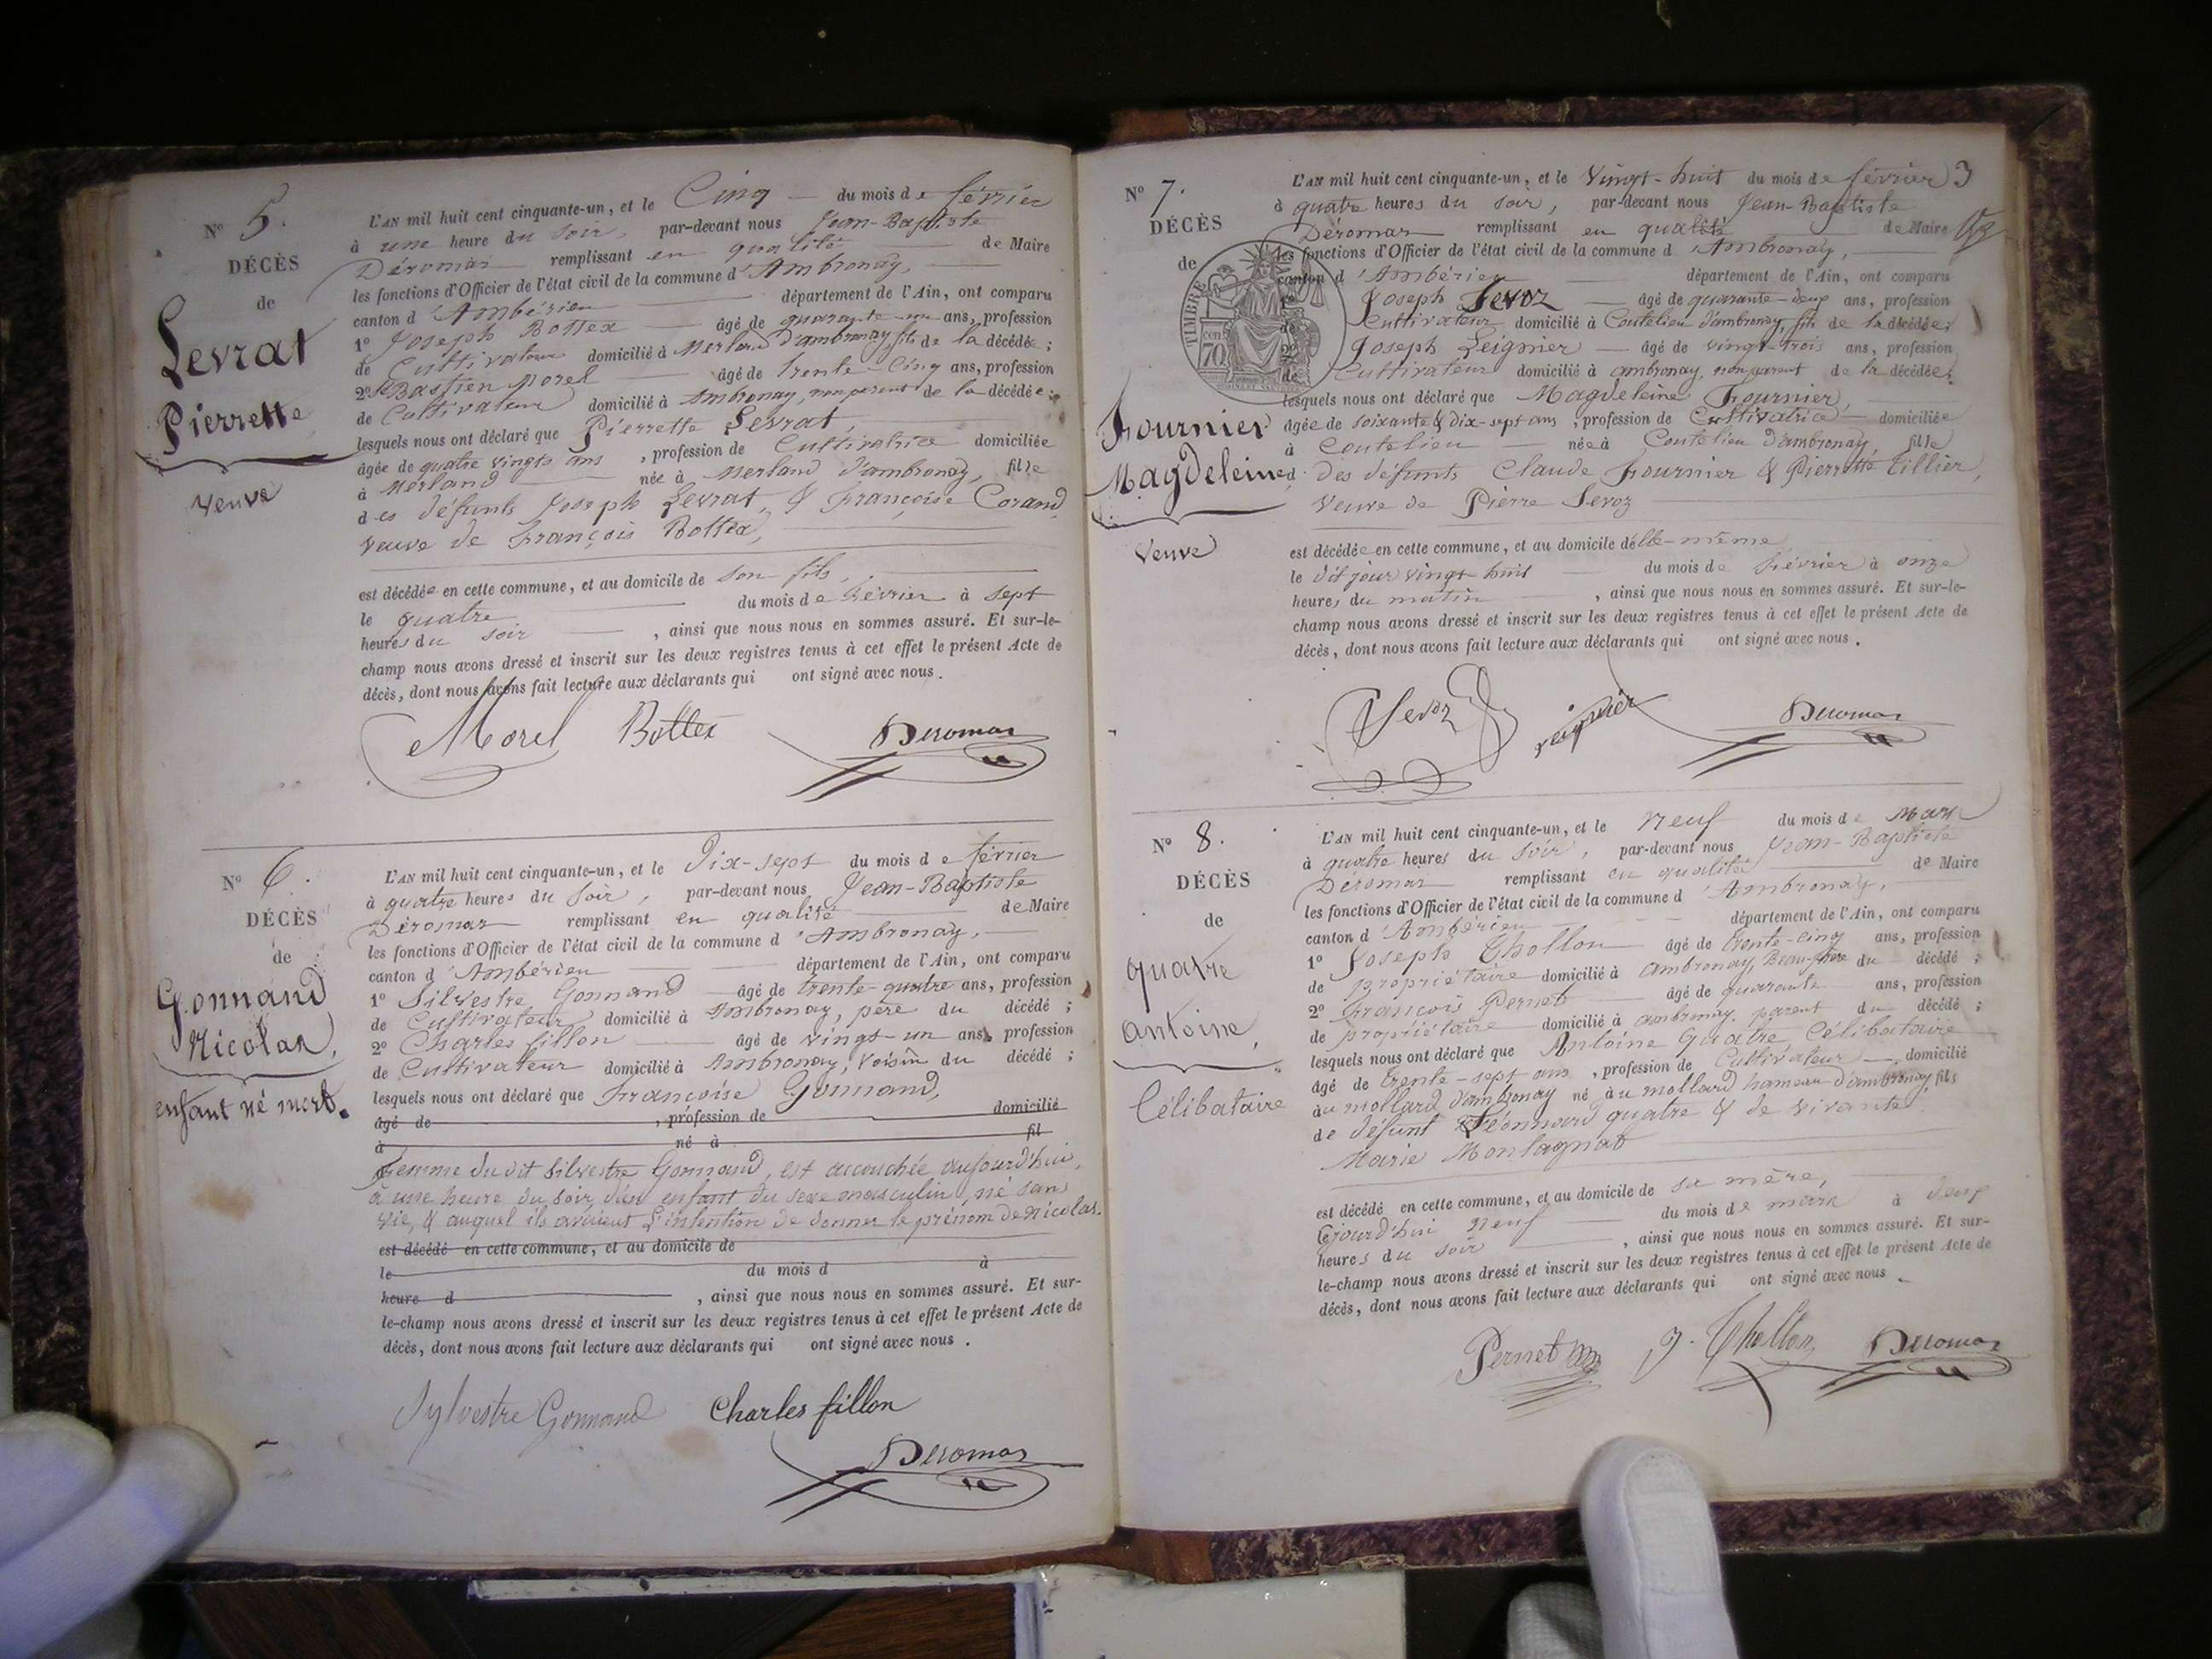 N° 5.
DÉCÈS
de
Levrat
Pierrette
Veuve
L'AN mil huit cent cinquante-un, et le Cinq du mois de février
à une heure du soir, par-devant nous Jean-Baptiste
Déromas remplissant en qualité de Maire
les fonctions d'Officier de l'état civil de la commune d'Ambronay,
canton d'Ambérieu département de l'Ain, ont comparu
1° Joseph Bottex âgé de quarante-un ans, profession
de Cultivateur domicilié à Merland d'ambronay, fils de la décédée;
2° Bastien Morel âgé de trente-cinq ans, profession
de Cultivateur domicilié à Ambronay, non parent de la décédée;
lesquels nous ont déclaré que Pierrette Levrat,
âgée de quatre vingts ans, profession de Cultivatrice domiciliée
à Merland née à Merland d'ambronay, fille
des défunts Joseph Levrat, & Françoise Corand
veuve de françois Bottex,
est décédée en cette commune, et au domicile de son fils,
le quatre du mois de février à sept
heures du soir, ainsi que nous nous en sommes assuré. Et sur-le-
champ nous avons dressé et inscrit sur les deux registres tenus à cet effet le présent Acte de
décès, dont nous avons fait lecture aux déclarants qui ont signé avec nous.
Morel Bottex Deromas
N° 6.
DÉCÈS
de
Gonnand
Nicolas,
enfant né mort.
L'AN mil huit cent cinquante-un, et le Dix-sept du mois de février
à quatre heures du soir, par-devant nous Jean-Baptiste
Déromas remplissant en qualité de Maire
les fonctions d'Officier de l'état civil de la commune d'Ambronay,
canton d'Ambérieu département de l'Ain, ont comparu
1° Silvestre Gonnand âgé de trente-quatre ans, profession
de Cultivateur domicilié à Ambronay, père du décédé;
2° Charles fillon âgé de vingt-un ans, profession
de Cultivateur domicilié à Ambronay, voisin du décédé;
lesquels nous ont déclaré que Françoise Gonnand,
âgé de , profession de domicilié
à né à fil
femme du dit Silvestre Gonnand, est accouchée aujourd'hui,
à une heure du soir, d'un enfant du sexe masculin, né sans
vie, & auquel ils avaient l'intention de donner le prénom de Nicolas.
est décédé en cette commune, et au domicile de
le du mois d à
heure d , ainsi que nous nous en sommes assuré. Et sur-
le-champ nous avons dressé et inscrit sur les deux registres tenus à cet effet le présent Acte de
décès, dont nous avons fait lecture aux déclarants qui ont signé avec nous.
Sylvestre Gonnand Charles fillon
Deromas
3
N° 7.
DÉCÈS
de
TIMBRE
70
Fournier
Magdeleine
Veuve
L'AN mil huit cent cinquante-un, et le Vingt-huit du mois de février
à quatre heures du soir, par-devant nous Jean-Baptiste
Déromas remplissant en qualité de Maire
les fonctions d'Officier de l'état civil de la commune d'Ambronay,
canton d'Ambérieu département de l'Ain, ont comparu
1° Joseph Sevoz âgé de quarante-deux ans, profession
de Cultivateur domicilié à Coutelieu d'ambronay, fils de la décédée;
2° Joseph Seignier âgé de vingt-trois ans, profession
de Cultivateur domicilié à ambronay, non parent de la décédée;
lesquels nous ont déclaré que Magdeleine Fournier,
âgée de soixante & dix-sept ans, profession de Cultivatrice domiciliée
à Coutelieu née à Coutelieu d'ambronay fille
des défunts Claude Fournier & Pierrette tillier,
veuve de Pierre Sevoz
est décédée en cette commune, et au domicile d'elle-même
le dit jour vingt-huit du mois de février à onze
heures du matin, ainsi que nous nous en sommes assuré. Et sur-le-
champ nous avons dressé et inscrit sur les deux registres tenus à cet effet le présent Acte de
décès, dont nous avons fait lecture aux déclarants qui ont signé avec nous.
Sevoz Seignier Deromas
N° 8.
DÉCÈS
de
quatre
antoine,
Célibataire
L'AN mil huit cent cinquante-un, et le neuf du mois de Mars
à quatre heures du soir, par-devant nous Jean-Baptiste
Déromas remplissant en qualité de Maire
les fonctions d'Officier de l'état civil de la commune d'Ambronay,
canton d'Ambérieu département de l'Ain, ont comparu
1° Joseph Thollon âgé de trente-cinq ans, profession
de propriétaire domicilié à ambronay, Beau-frère du décédé;
2° françois Pernet âgé de quarante ans, profession
de propriétaire domicilié à ambronay, parent du décédé;
lesquels nous ont déclaré que Antoine Quatre, Célibataire
âgé de trente-sept ans, profession de Cultivateur domicilié
au mollard d'ambronay né au mollard hameau d'ambronay fils
de défunt Léonnard quatre & de vivante
Marie Montagnat
est décédé en cette commune, et au domicile de sa mère,
Cejourd'hui neuf du mois de mars à deux
heures du soir, ainsi que nous nous en sommes assuré. Et sur-
le-champ nous avons dressé et inscrit sur les deux registres tenus à cet effet le présent Acte de
décès, dont nous avons fait lecture aux déclarants qui ont signé avec nous.
Pernet J. Thollon Deromas